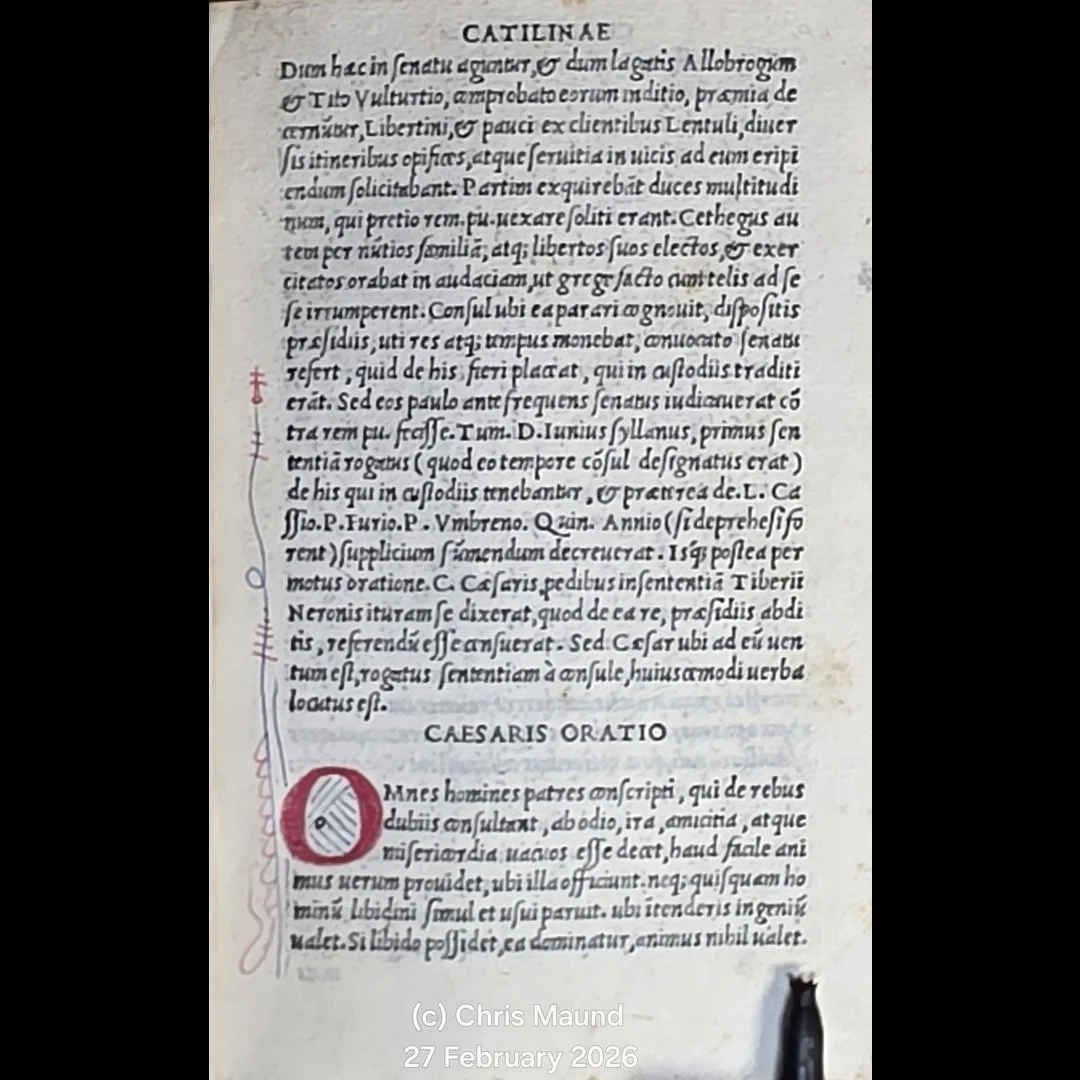 CATILINAE
Dum hæc in ſenatu aguntur, & dum lagatis Allobrogum
& Tito Vulturtio, comprobato eorum inditio, præmia de
cernũtur, Libertini, & pauci ex clientibus Lentuli, diuer
ſis itineribus opifices, atque ſeruitia in uicis ad eum eripi
endum ſolicitabant. Partim exquirebãt duces multitudi
num, qui pretio rem. pu. uexare ſoliti erant. Cethegus au
tem per nũtios familiã, atq; libertos ſuos electos, & exer
citatos orabat in audaciam, ut grege facto cum telis ad ſe
ſe irrumperent. Conſul ubi ea parari cognouit, diſpoſitis
præſidiis, uti res atq; tempus monebat, conuocato ſenatu
refert, quid de his fieri placeat, qui in cuſtodiis traditi
erãt. Sed eos paulo ante frequens ſenatus iudicauerat cõ
tra rem pu. feciſſe. Tum. D. Iunius ſyllanus, primus ſen
tentiã rogatus ( quod eo tempore cõſul deſignatus erat )
de his qui in cuſtodiis tenebantur, & præterea de. L. Ca
ſſio. P. Furio. P. Vmbreno. Quin. Annio ( ſi deprehẽſi fo
rent ) ſupplicium ſũmendum decreuerat. Isq; poſtea per
motus oratione. C. Cæſaris, pedibus in ſententiã Tiberii
Neronis ituram ſe dixerat, quod de ea re, præſidiis abdi
tis, referendũ eſſe conſuerat. Sed Cæſar ubi ad eũ uen
tum eſt, rogatus ſententiam à conſule, huiuscemodi uerba
locutus eſt.
CAESARIS ORATIO
OMnes homines patres conſcripti, qui de rebus
dubiis conſultant, ab odio, ira, amicitia, atque
miſericordia uacuos eſſe decet, haud facile ani
mus uerum prouidet, ubi illa officiunt. neq; quiſquam ho
minũ libidini ſimul et uſui paruit. ubi ĩtenderis ingeniũ
ualet. Si libido poſſidet, ea dominatur, animus nihil ualet.
(c) Chris Maund
27 February 2026